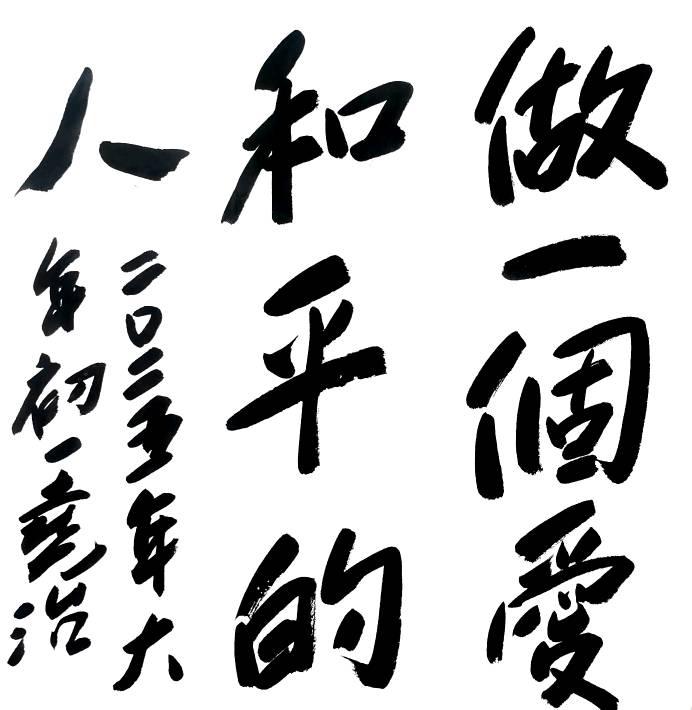 做一個愛
和平的
人
二〇二五年大
年初一堯治